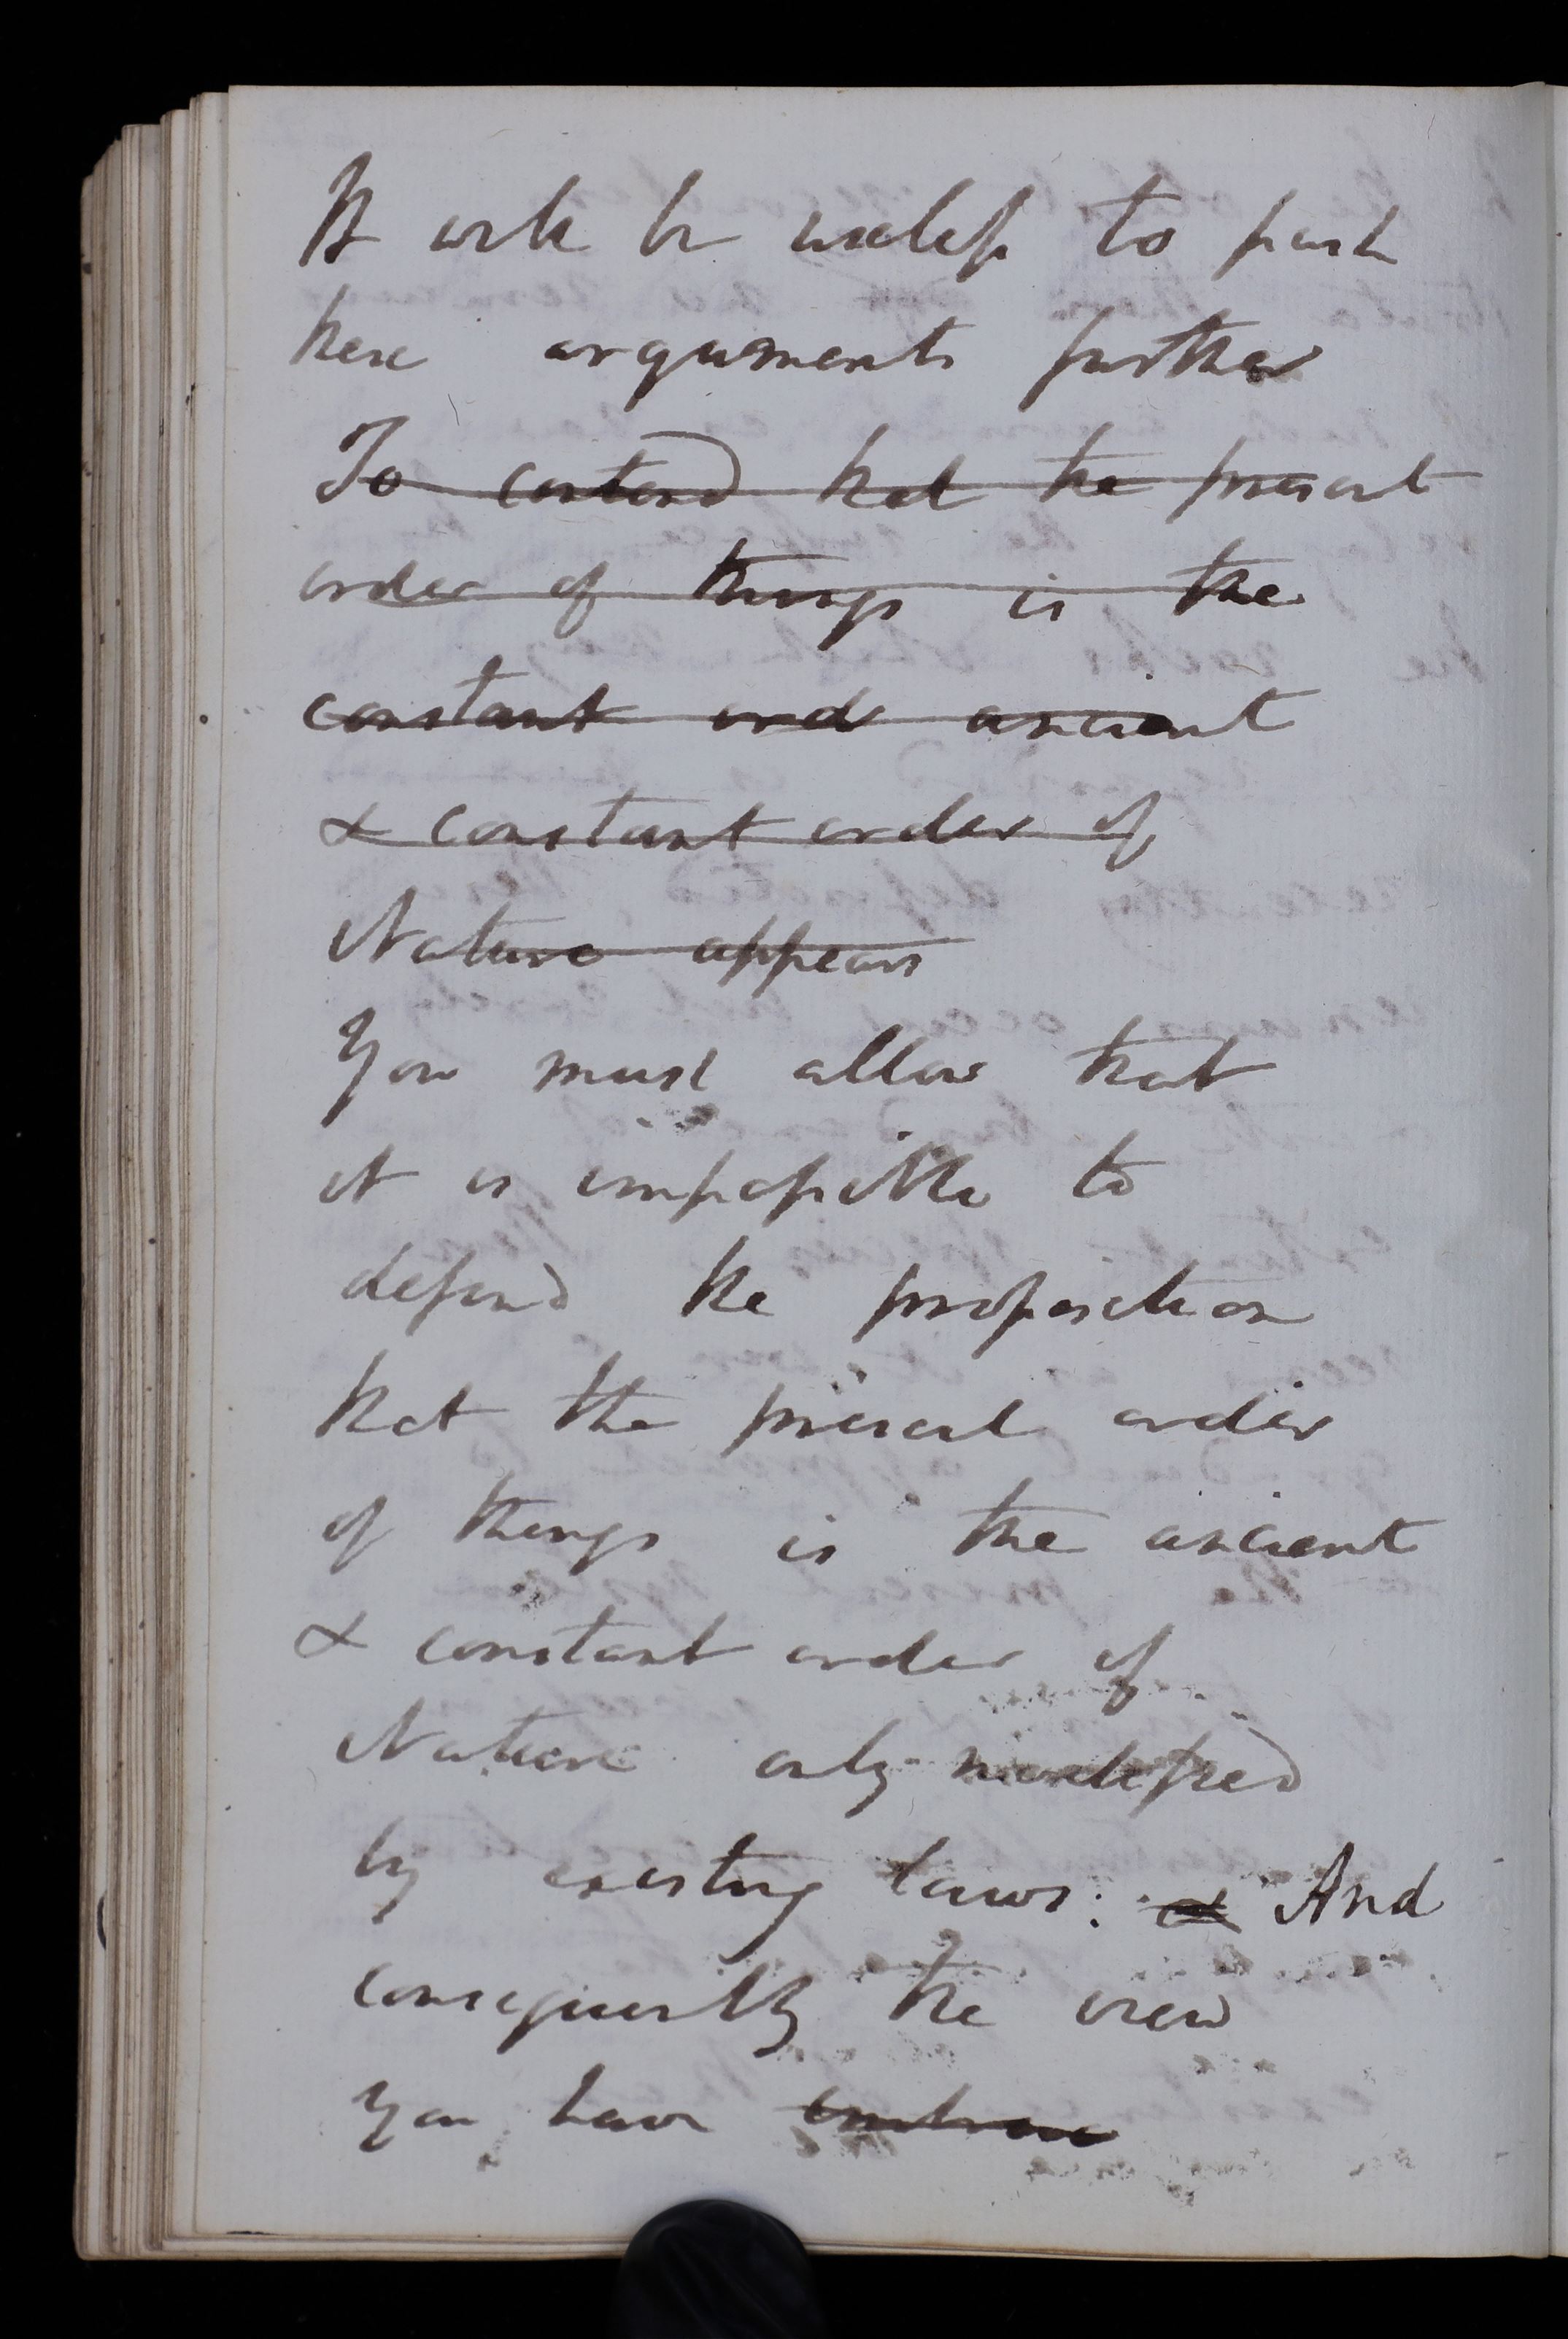 It wd be useless to push
these arguments further
To contend that the present
order of things is the
constant ord ancient
& constant order of
Nature appears
You must allow that
it is impossible to
defend the proposition
that the present order
of things is the ancient
& constant order of
Nature only modified
by existing laws: & And
consequently the view
you have embrace